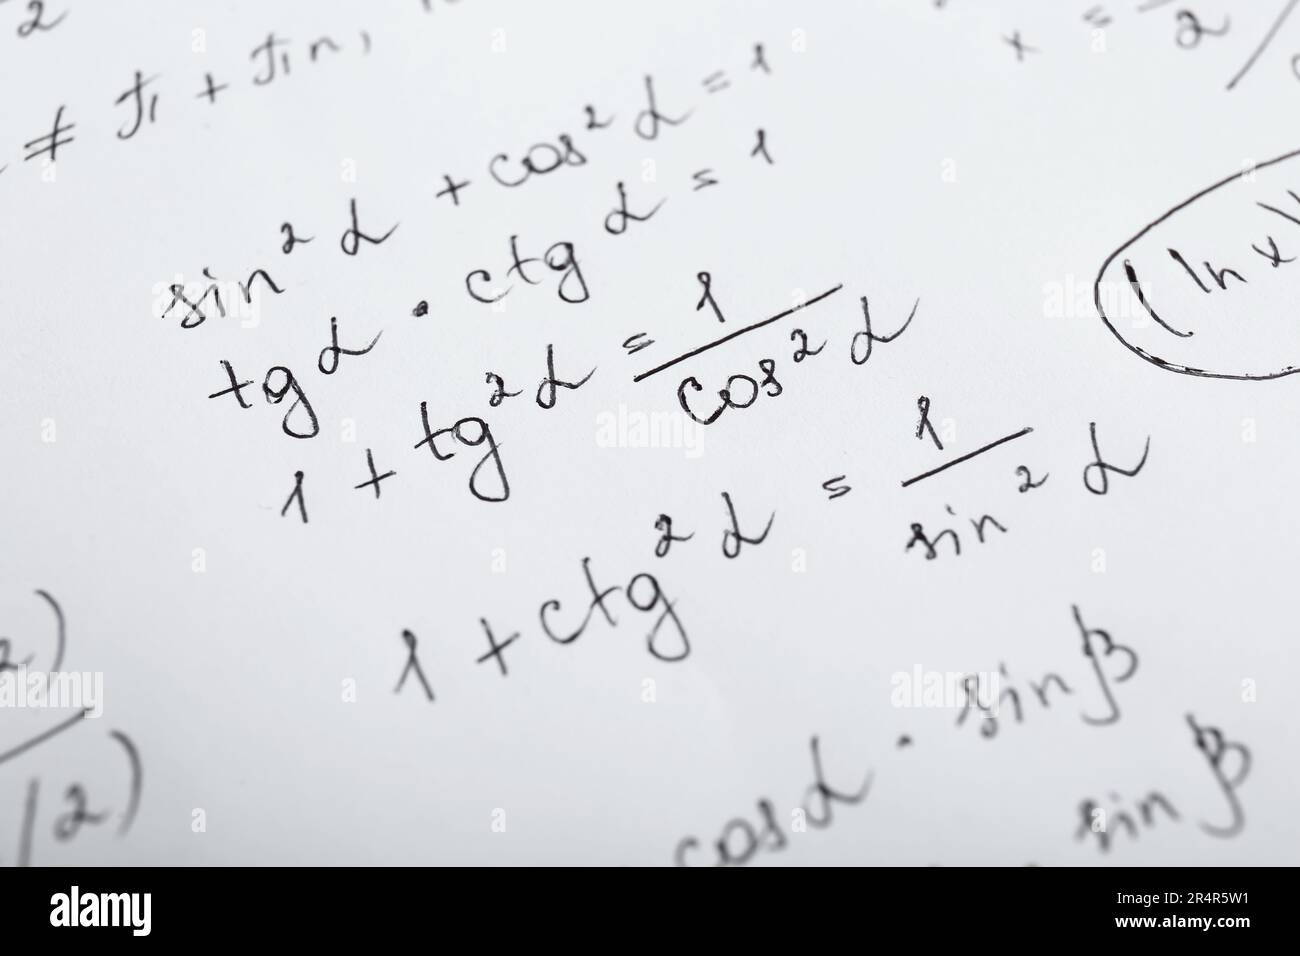 2
≠ π + πn,
x = 2 /
sin² α + cos² α = 1
tg α · ctg α = 1
1 + tg² α = 1 / cos² α
(ln x)
1 + ctg² α = 1 / sin² α
2)
/2)
cos α · sin β
sin β
alamy
Image ID: 2R4R5W1
www.alamy.com